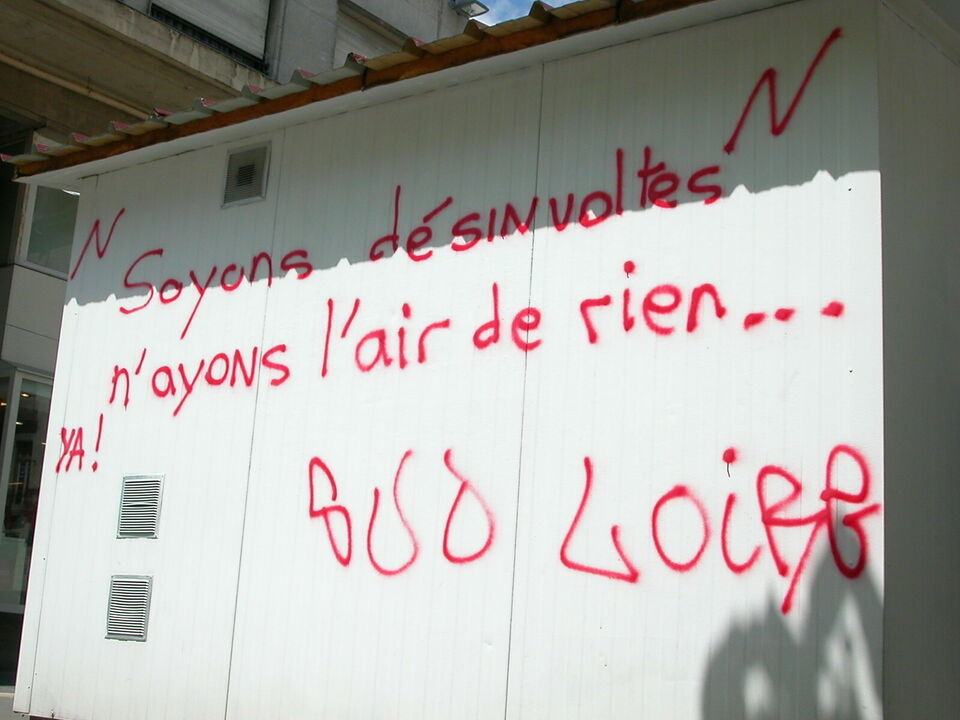 N Soyons désinvoltes N
n'ayons l'air de rien...
YA!
SUD LOIRE